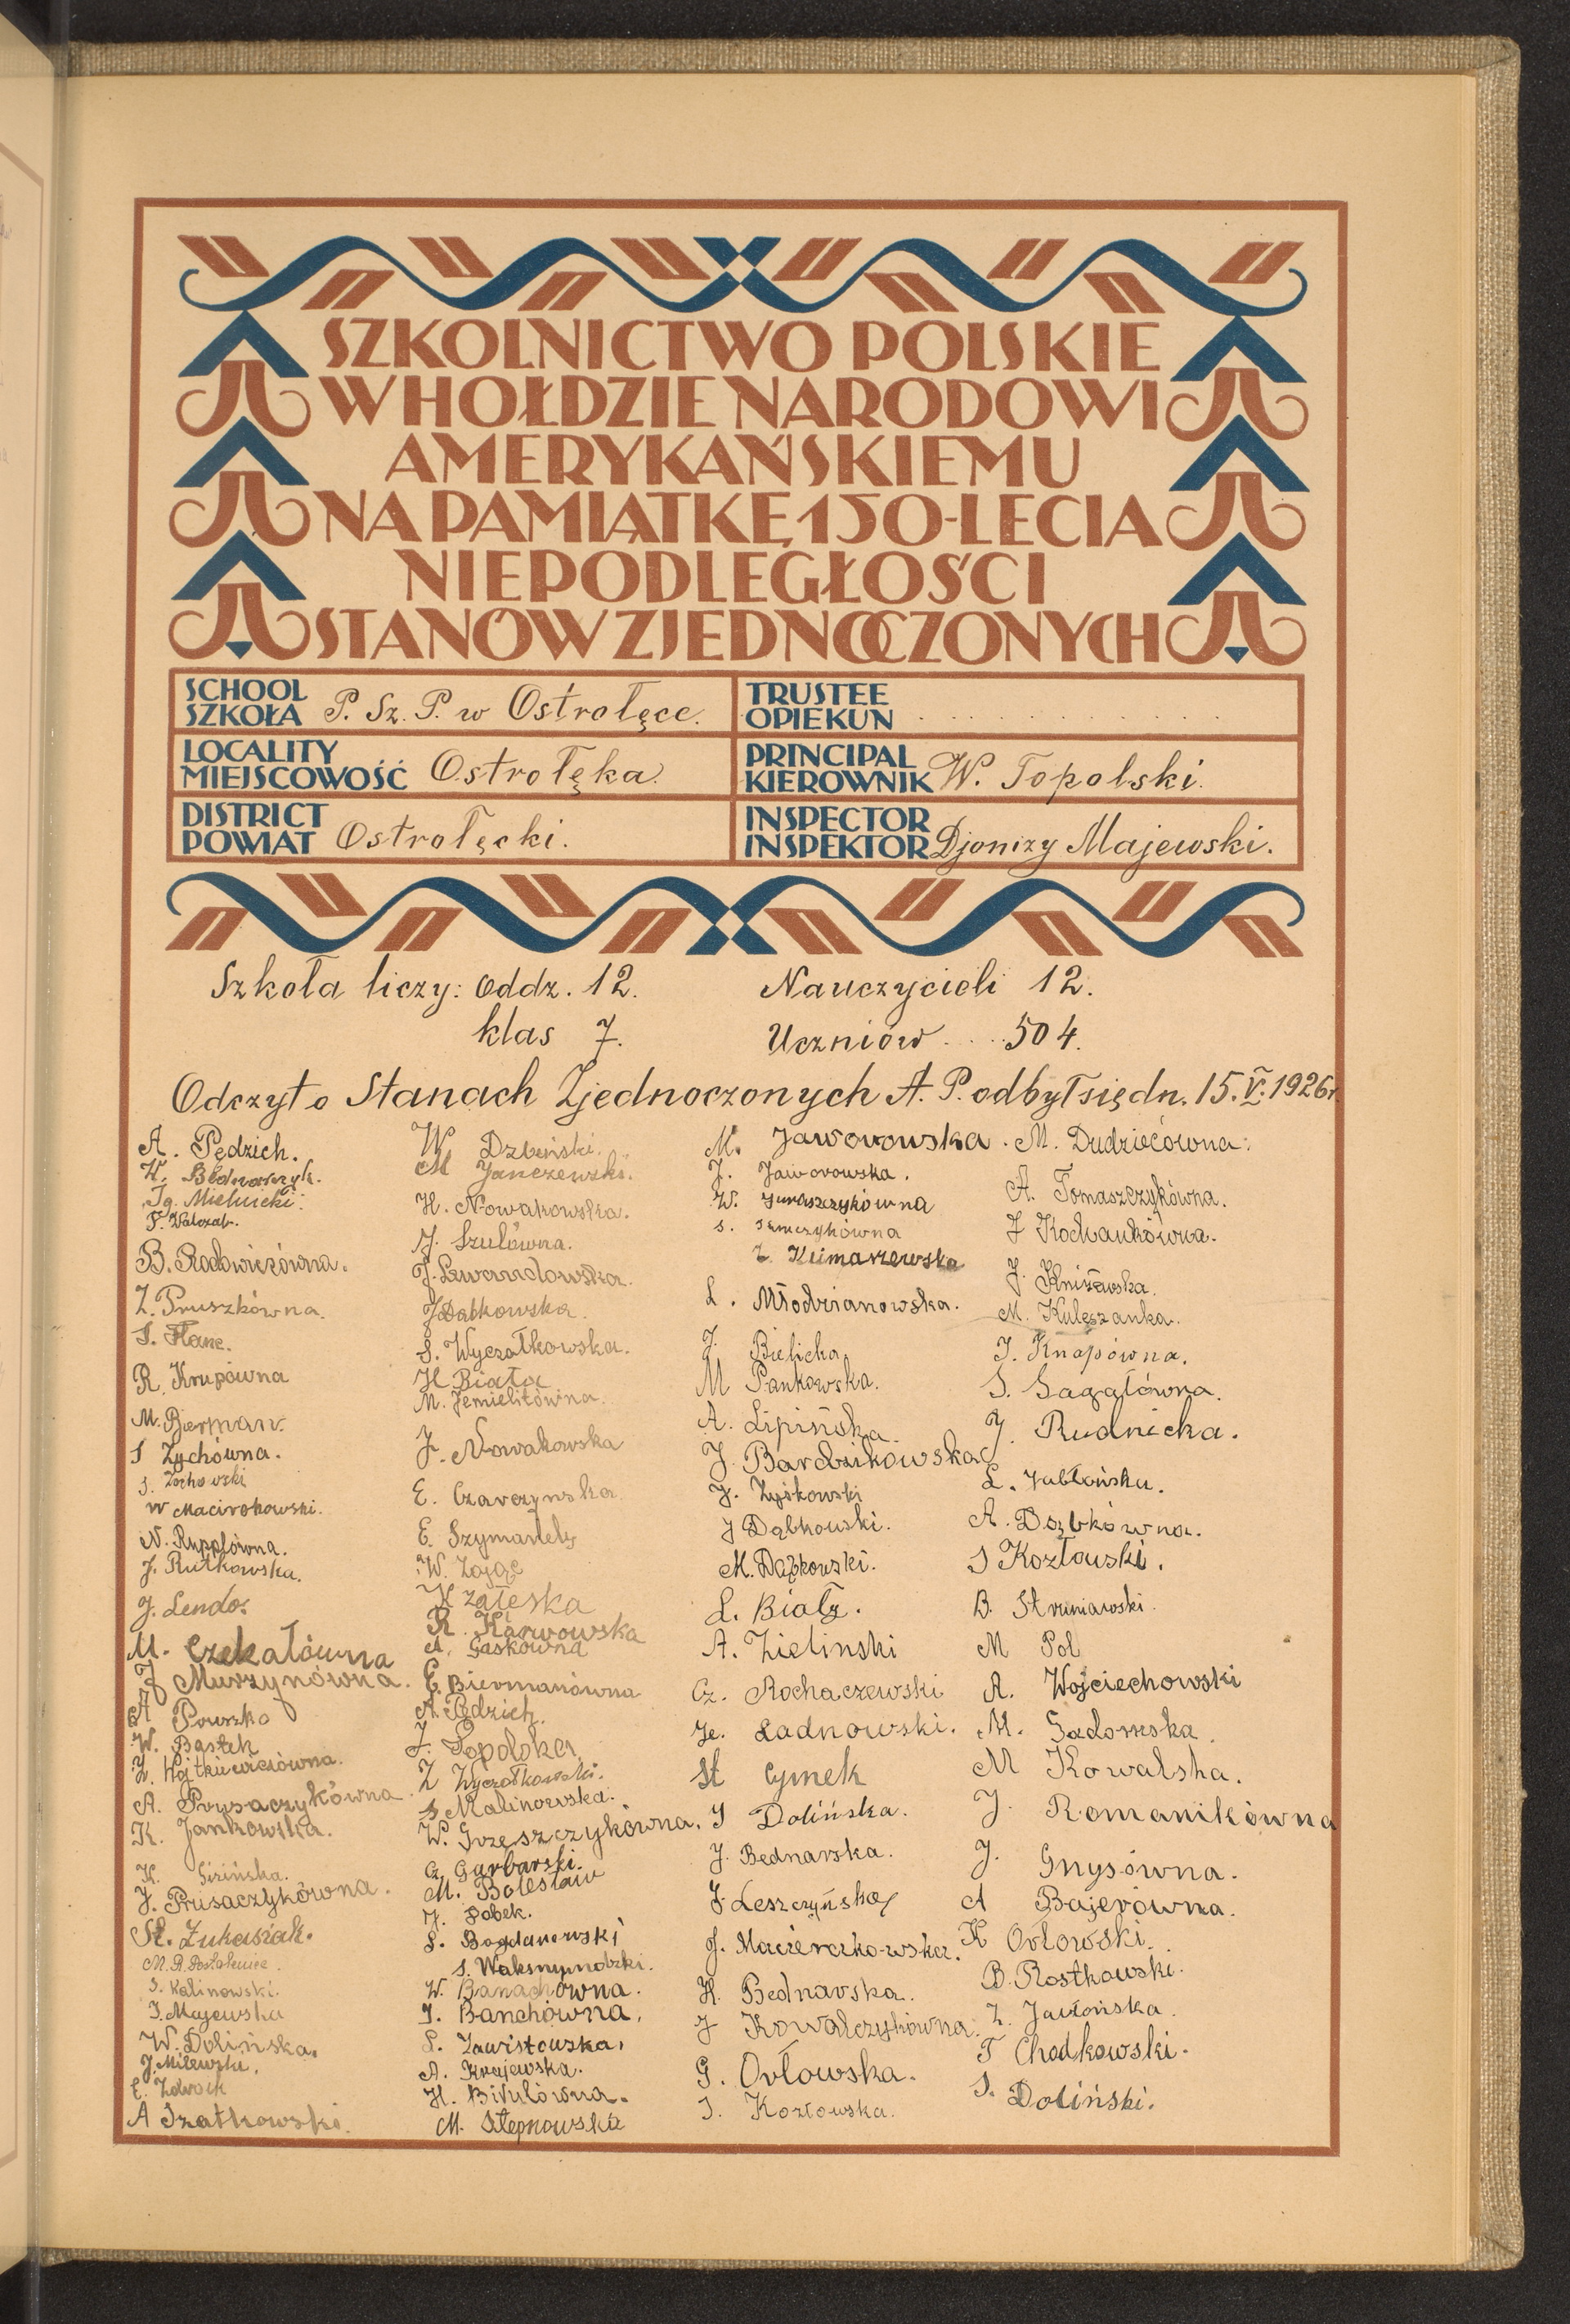 SZKOLNICTWO POLSKIE
W HOŁDZIE NARODOWI
AMERYKAŃSKIEMU
NA PAMIĄTKĘ 150-LECIA
NIEPODLEGŁOŚCI
STANÓW ZJEDNOCZONYCH
SCHOOL
SZKOŁA P. Sz. P. w Ostrołęce.
TRUSTEE
OPIEKUN
LOCALITY
MIEJSCOWOŚĆ Ostrołęka.
PRINCIPAL
KIEROWNIK W. Topolski.
DISTRICT
POWIAT Ostrołęcki.
INSPECTOR
INSPEKTOR Djonizy Majewski.
Szkoła liczy: Oddz. 12. Nauczycieli 12.
klas 7. Uczniów .... 504.
Odczyt o Stanach Zjednoczonych A. P. odbył się dn. 15.V.1926r.
A. Pędzich.
K. Bednarczyk.
Ig. Mielnicki.
F. Walczak.
B. Rodowiczówna.
Z. Pruszkówna.
S. Flanc.
R. Krupówna
M. Bierman.
S Zychówna.
S. Zochowski
W
N. Rupplówna.
J. Rutkowska.
J. Lendo.
M. Czekałówna
J Murzynówna.
A Powszko
W. Bąstek
Z. Wojtkiewiczówna.
A. Prusaczykówna
K. Jankowska.
K.
J. Prusaczykówna.
St. Łukasiak.
M. R.
S. Kalinowski.
J. Majewska
W. Dolińska.
J. Milewska.
E.
A Szatkowski.
W. Dzbeński.
M Janczewski.
H. Nowakowska.
J. Szulówna.
J. Lewandowska.
J Dąbkowska.
S. Wyczałkowska.
H Biała
M. Jemielitówna.
J. Nowakowska
E. Czarzynska
E. Szymanek
W. Zając
K Załeska
R. Karwowska
A. Gaskówna
E Biermanówna
A. Pędzich.
J. Topolska
Z Wyczałkowski.
S Malinowska.
W. Grzeszczykówna.
Cz. Garbarski.
M. Bolesław
J. Sobek.
S. Bogdanowski
S.
W. Banachówna.
J. Banchówna.
S. Zawistowska.
A. Krajewska.
H. Bitulówna.
M. Stepnowska
M. Jaworowska.
J. Jaworowska.
W. Juraszczykówna
S.
Z. Klimaszewska
L. Młodzianowska.
J. Bielicka.
M Pankowska.
A. Lipińska.
J. Bardzikowska
J. Zyśkowski
J Dąbkowski.
M. Dąbkowski.
L. Biały.
A. Zielinski
Cz. Rochaczewski
Je. Ladnowski.
St Cymek
S Dolińska.
J. Bednarska.
J. Leszczyńska
J. Macierzkowska.
H. Bednarska.
J Kowalczykówna.
G. Orłowska.
S. Kozłowska.
M. Dudziećówna.
A. Tomaszczykówna.
J Kochankówna.
J. Kniżewska.
M. Kulęszanka.
J. Knapówna.
S. Gagałówna.
J. Rudnicka.
L. Jabłońska.
A. Dąbkówna.
S Kozłowski.
B. Struniawski.
M Pol
A. Wojciechowski
M. Sadowska.
M Kowalska.
J. Romanikówna
J. Gnysówna.
A Bajerówna.
K Orłowski.
B. Rostkowski.
Z. Jabłońska.
T Chodkowski.
S. Doliński.